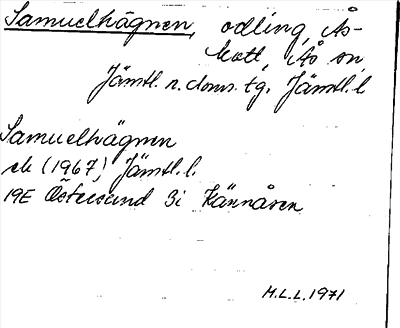 Samuelhägnen, odling, Ås-
kott, Ås sn,
Jämtl. n. doms. tg, Jämtl. l
Samuelhägnen
ek (1967) Jämtl. l.
19E Östersund 3i Kännåsen
H.L.L. 1971